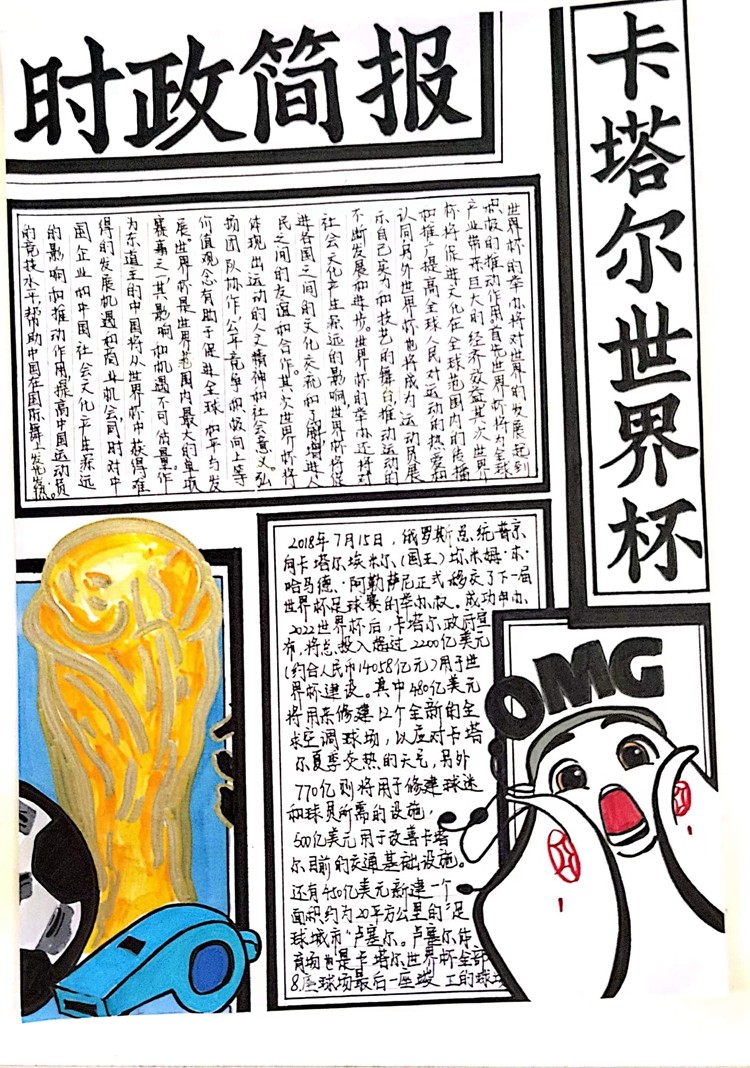 时政简报
卡塔尔世界杯
世界杯的举办将对世界的发展起到
积极的推动作用首先世界杯将为全球
产业带来巨大的经济效益其次世界
杯将促进文化在全球范围内的传播
和推广提高全球人民对运动的热爱和
认同另外世界杯也将成为运动员展
示自己实力和技艺的舞台推动运动的
不断发展和进步。世界杯的举办还将对
社会文化产生深远的影响世界杯将促
进各国之间的文化交流和了解,增进人
民之间的友谊和合作。其次世界杯将
体现出运动的人文精神和社会意义弘
扬团队协作,公平竞争积极向上等
价值观念有助于促进全球和平与发
展。世界杯是世界范围内最大的单项
赛事之一其影响和机遇不可估量。作
为东道主的中国将从世界杯中获得难
得的发展机遇和商业机会同时对中
国企业和中国社会文化产生深远
的影响和推动作用,提高中国运动员
的竞技水平帮助中国在国际舞上发光
2018年7月15日,俄罗斯总统普京
向卡塔尔埃米尔(国王)塔米姆·本·
哈马德·阿勒萨尼正式移交了下一届
世界杯足球赛的举办权。成功申办
2022世界杯后,卡塔尔政府宣
布,将总投入超过2200亿美元
(约合人民币14058亿元)用于世
界杯建设。其中480亿美元
将用来修建12个全新的全
球空调球场,以应对卡塔
尔夏季炎热的天气,另外
770亿则将用于修建球迷
和球员所需的设施,
500亿美元用于改善卡塔
尔目前的交通基础设施。
还有450亿美元新建一个
面积约为20平方公里的"足
球城市"卢塞尔。卢塞尔体
育场也是卡塔尔世界杯全部
8座球场最后一座竣工的球场
OMG